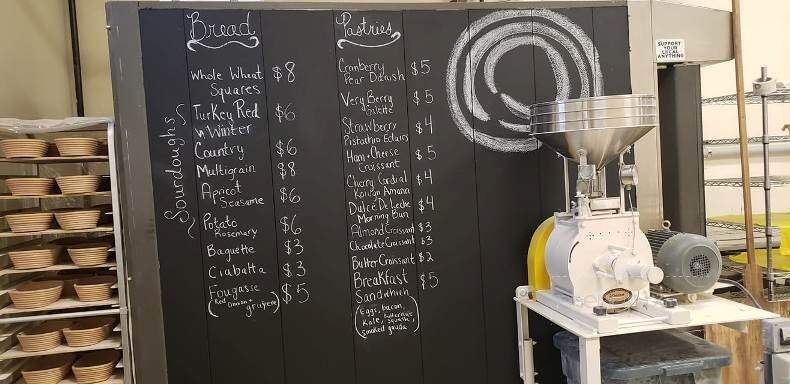 Bread
Sourdoughs
Whole Wheat $8
Squares
Turkey Red $6
w Winter
Country $6
Multigrain $8
Apricot $6
Seasame
Potato $6
Rosemary
Baguette $3
Ciabatta $3
Fougasse $5
(Red Onion +
gruyere)
Pastries
Cranberry $5
Pear Danish
Very Berry $5
Galette
Strawberry $4
Pistachio Eclairs
Ham + Cheese $5
Croissant
Cherry Cordial $4
Kouign Amann
Dulce De Leche $4
Morning Bun
Almond Croissant $3
Chocolate Croissant $3
Butter Croissant $2
Breakfast $5
Sandwhich
(Eggs, bacon,
Butternut
Kale, Squash,
smoked gouda)
SUPPORT
YOUR
LOCAL
ANYTHING